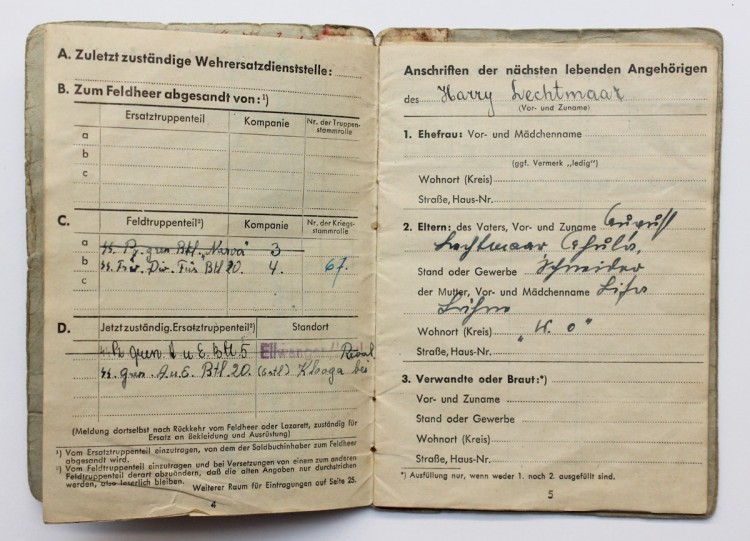 A. Zuletzt zuständige Wehrersatzdienststelle:
B. Zum Feldheer abgesandt von:¹)
Ersatztruppenteil Kompanie Nr. der Truppen-
stammrolle
a
b
c
C. Feldtruppenteil²) Kompanie Nr. der Kriegs-
stammrolle
a SS. Pz. gren. Btl. „Narwa" 3
b SS. Div. Füs Btl 20. 4. 67.
c
D. Jetzt zuständig. Ersatztruppenteil²) Standort
gren. A u E. Btl. 5 Ellwangen Reval
SS. gren. A. u. E. Btl. 20. (Estl.) Klooga bei
(Meldung dortselbst nach Rückkehr vom Feldheer oder Lazarett, zuständig für
Ersatz an Bekleidung und Ausrüstung)
¹) Vom Ersatztruppenteil einzutragen, von dem der Soldbuchinhaber zum Feldheer
abgesandt wird.
²) Vom Feldtruppenteil einzutragen und bei Versetzungen von einem zum anderen
Feldtruppenteil derart abzuändern, daß die alten Angaben nur durchstrichen
werden, also leserlich bleiben. Weiterer Raum für Eintragungen auf Seite 25.
4
Anschriften der nächsten lebenden Angehörigen
des Harry Lechtmaar
(Vor- und Zuname)
1. Ehefrau: Vor- und Mädchenname
(ggf. Vermerk „ledig")
Wohnort (Kreis)
Straße, Haus-Nr.
2. Eltern: des Vaters, Vor- und Zuname August
Lechtmaar,
Stand oder Gewerbe Schneider
der Mutter, Vor- und Mädchenname
Wohnort (Kreis)
Straße, Haus-Nr.
3. Verwandte oder Braut:*)
Vor- und Zuname
Stand oder Gewerbe
Wohnort (Kreis)
Straße, Haus-Nr.
*) Ausfüllung nur, wenn weder 1. noch 2. ausgefüllt sind.
5